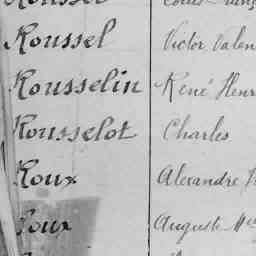 Roussel Victor Valen
Rousselin René Henr
Rousselot Charles
Roux Alexandre
Roux Auguste